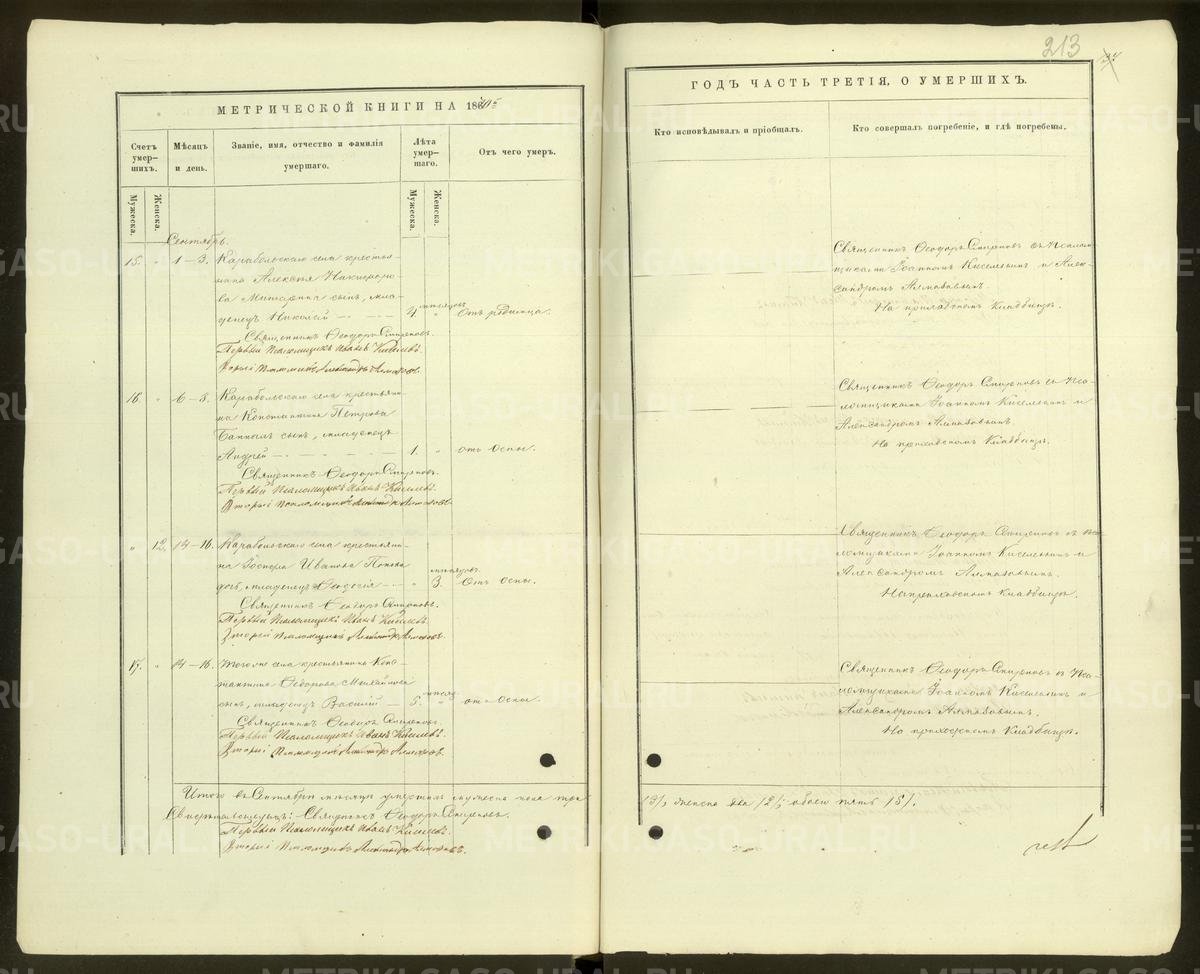 213
МЕТРИЧЕСКОЙ КНИГИ НА 18
ГОДЪ ЧАСТЬ ТРЕТІЯ, О УМЕРШИХЪ.
Счетъ умер-шихъ.
Мѣсяцъ и день.
Званіе, имя, отчество и фамилія умершаго.
Лѣта умер-шаго.
Отъ чего умеръ.
Кто исповѣдывалъ и пріобщалъ.
Кто совершалъ погребеніе, и гдѣ погребены.
Мужеска.
Женска.
Мужеска.
Женска.
Сентябрь.
15. " 1–3. Карабольскаго села крестья-
нина Алексѣя Никифоро-
ва сынъ, мла-
денецъ Николай 4. мѣсяцовъ " Отъ родимца.
Священникъ Ѳеодоръ Смирновъ.
Первый Псаломщикъ Иванъ Киселевъ.
Вторый Псаломщикъ Александръ Алмазовъ.
Священникъ Ѳеодоръ Смирновъ съ Псалом-
щиками Іоанномъ Киселевымъ и Алек-
сандромъ Алмазовымъ.
На приходскомъ Кладбищѣ.
16. " 6–8. Карабольскаго села крестьяни-
на Константина Петрова
сынъ, младенецъ
Андрей 1. " отъ Оспы.
Священникъ Ѳеодоръ Смирновъ.
Первый Псаломщикъ Иванъ Киселевъ.
Вторый Псаломщикъ Александръ Алмазовъ.
Священникъ Ѳеодоръ Смирновъ съ Пса-
ломщиками Іоанномъ Киселевымъ и
Александромъ Алмазовымъ
На приходскомъ Кладбищѣ.
" 12. 14–16. Карабольскаго села крестьяни-
на Ивана Попова
дочь, младенецъ Ѳеодосія " мѣсяцовъ. 3. Отъ Оспы.
Священникъ Ѳеодоръ Смирновъ.
Первый Псаломщикъ Иванъ Киселевъ.
Вторый Псаломщикъ Александръ Алмазовъ.
Священникъ Ѳеодоръ Смирновъ съ Пса-
ломщиками Іоанномъ Киселевымъ и
Александромъ Алмазовымъ.
На приходскомъ Кладбищѣ.
17. " 14–16. Тогоже села крестьянина Кон-
стантина Ѳедорова Михайлова
сынъ, младенецъ Василій 5. мѣсяц. " отъ Оспы.
Священникъ Ѳеодоръ Смирновъ.
Первый Псаломщикъ Иванъ Киселевъ.
Вторый Псаломщикъ Александръ Алмазовъ.
Священникъ Ѳеодоръ Смирновъ съ Пса-
ломщиками Іоанномъ Киселевымъ и
Александромъ Алмазовымъ.
На приходскомъ Кладбищѣ.
Итого въ Сентябрѣ мѣсяцѣ умершихъ мужеска пола три
/3/, женска два /2/, обоего пять /5/.
Свидѣтельствуютъ: Священникъ Ѳеодоръ Смирновъ.
Первый Псаломщикъ Иванъ Киселевъ.
Вторый Псаломщикъ Александръ Алмазовъ.
METRIKI.GASO-URAL.RU